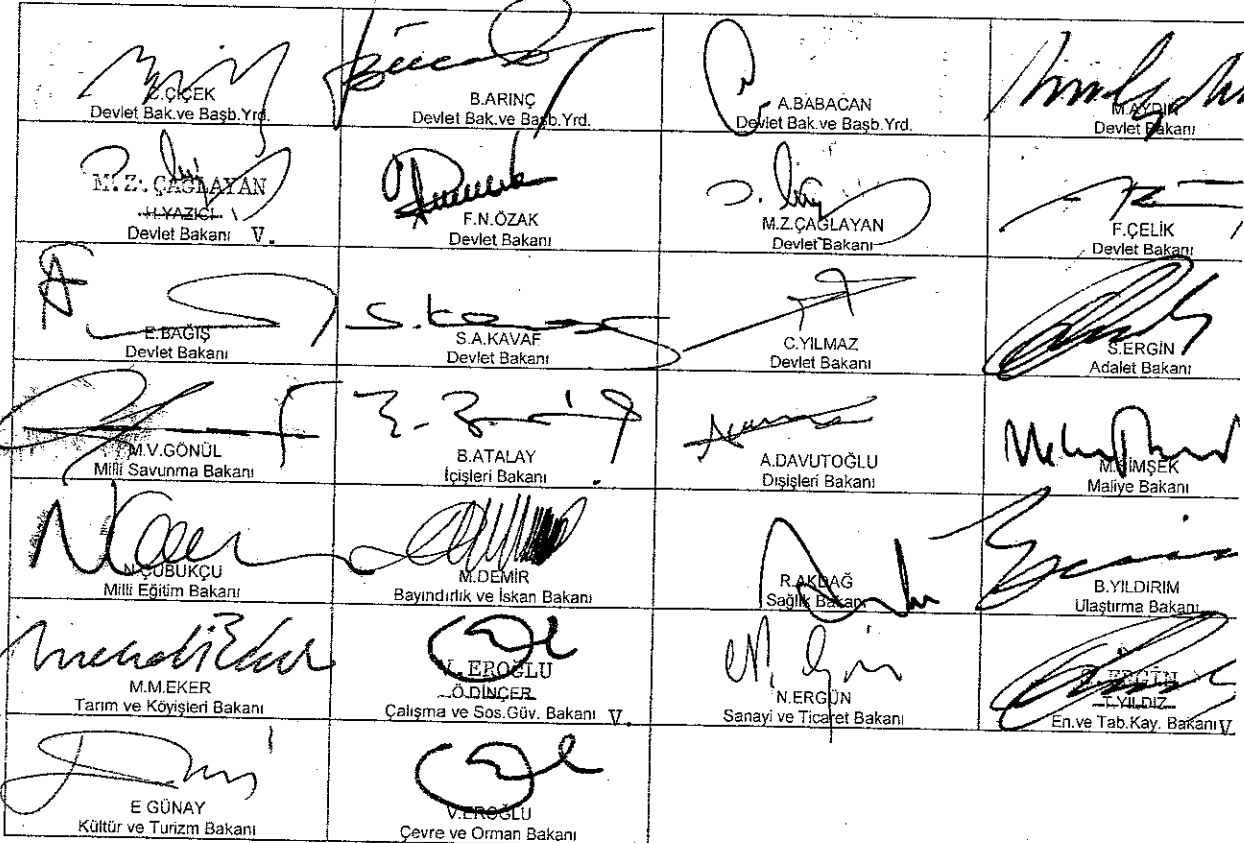 C.ÇİÇEK
Devlet Bak.ve Başb.Yrd.
B.ARINÇ
Devlet Bak.ve Başb.Yrd.
A.BABACAN
Devlet Bak.ve Başb.Yrd.
M.AYDIN
Devlet Bakanı
M.Z.ÇAĞLAYAN
H.YAZICI
Devlet Bakanı V.
F.N.ÖZAK
Devlet Bakanı
M.Z.ÇAĞLAYAN
Devlet Bakanı
F.ÇELİK
Devlet Bakanı
E.BAĞIŞ
Devlet Bakanı
S.A.KAVAF
Devlet Bakanı
C.YILMAZ
Devlet Bakanı
S.ERGİN
Adalet Bakanı
M.V.GÖNÜL
Milli Savunma Bakanı
B.ATALAY
İçişleri Bakanı
A.DAVUTOĞLU
Dışişleri Bakanı
M.ŞİMŞEK
Maliye Bakanı
N.ÇUBUKÇU
Milli Eğitim Bakanı
M.DEMİR
Bayındırlık ve İskan Bakanı
R.AKDAĞ
Sağlık Bakanı
B.YILDIRIM
Ulaştırma Bakanı
M.M.EKER
Tarım ve Köyişleri Bakanı
V.EROĞLU
Ö.DİNÇER
Çalışma ve Sos.Güv. Bakanı V.
N.ERGÜN
Sanayi ve Ticaret Bakanı
S.ERGİN
T.YILDIZ
En.ve Tab.Kay. Bakanı V.
E GÜNAY
Kültür ve Turizm Bakanı
V.EROĞLU
Çevre ve Orman Bakanı